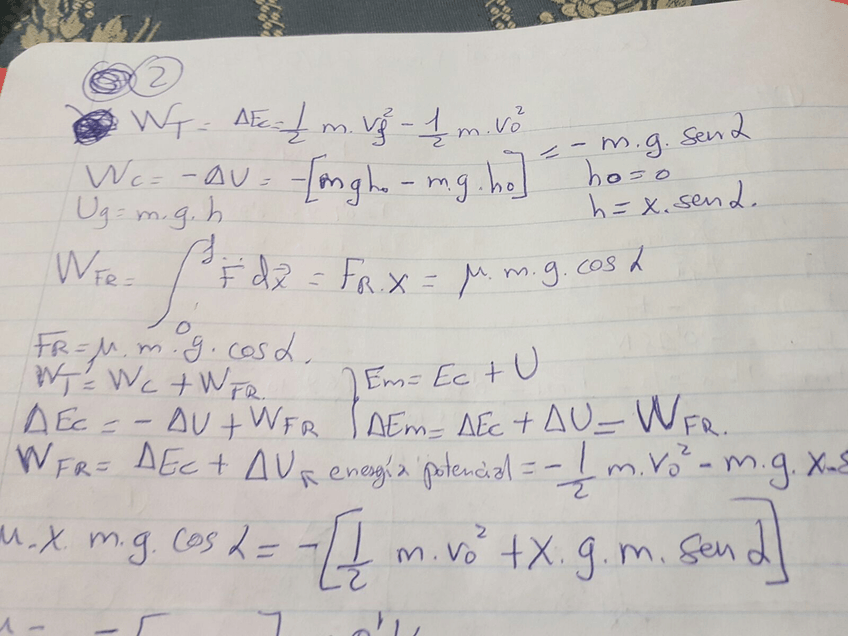 2
W_T = ΔEc = 1/2 m. Vf² - 1/2 m. Vo²
Wc = - ΔU = -[mgho - m.g.ho] = - m.g. sen α
Ug = m.g.h
ho = 0
h = x. sen α.
W_FR = ∫₀ᶠ F dx = FR. x = μ. m. g. cos α
FR = μ. m. g. cos α.
W_T = Wc + W_FR. } Em = Ec + U
ΔEc = - ΔU + W_FR } ΔEm = ΔEc + ΔU = W_FR.
W_FR = ΔEc + ΔU ↖ energía potencial = - 1/2 m. Vo² - m.g. x.s
μ. x. m.g. cos α = -[1/2 m. vo² + x. g. m. sen α]